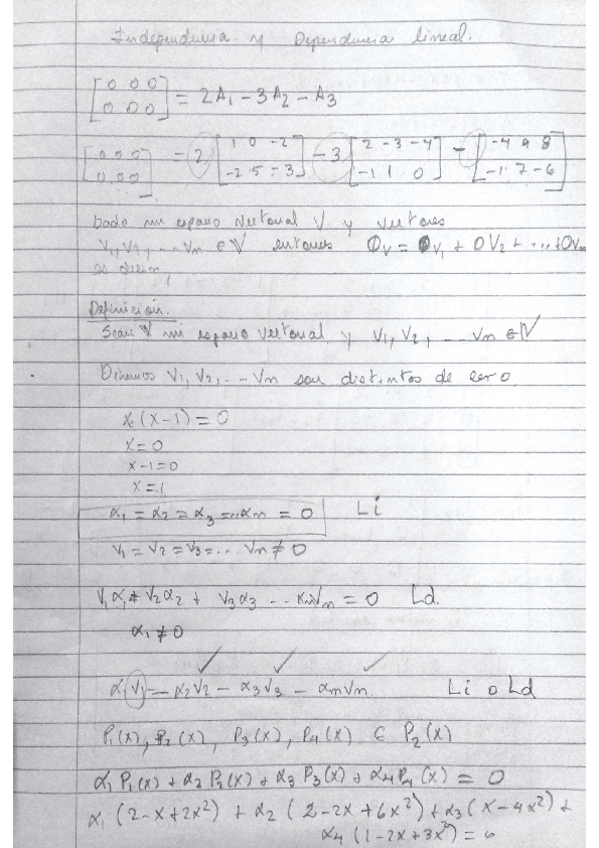 Independencia y Dependencia lineal.
[0 0 0
0 0 0] = 2A₁ - 3A₂ - A₃
[0 0 0
0 0 0] = 2 [1 0 -2
-2 5 -3] - 3 [2 -3 -4
-1 1 0] - [-4 9 8
-1 7 -6]
Dado un espacio vectorial V y vectores
V₁, V₂, ... Vn ∈ V entonces 0v = 0V₁ + 0V₂ + ... + 0Vn
es decir,
Definición.
Sean V un espacio vectorial y V₁, V₂, ... Vn ∈ V
Diremos V₁, V₂, ... Vn son distintos de cero.
x (x-1) = 0
x = 0
x-1 = 0
x = 1
α₁ = α₂ = α₃ = ... αn = 0 Li
V₁ = V₂ = V₃ = ... Vn ≠ 0
V₁α₁ + V₂α₂ + V₃α₃ ... αnVn = 0 Ld.
α₁ ≠ 0
α₁V₁ = -α₂V₂ - α₃V₃ - αnVn. Li o Ld
P₁(x), P₂(x), P₃(x), P₄(x) ∈ P₂(x)
α₁P₁(x) + α₂P₂(x) + α₃P₃(x) + α₄P₄(x) = 0
α₁ (2-x+2x²) + α₂ (2-2x+6x²) + α₃ (x-4x²) +
α₄ (1-2x+3x²) = 0